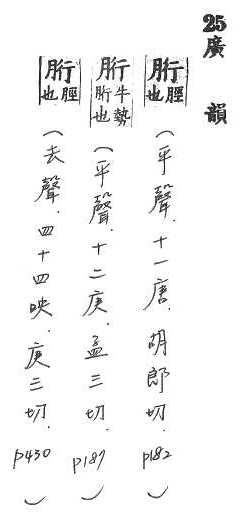 25廣韻
胻脛也（平聲．十一唐．胡郎切．p182）
胻牛勢胻也（平聲．十二庚．孟三切．p187）
胻脛也（去聲．四十四映．庚三切．p430）